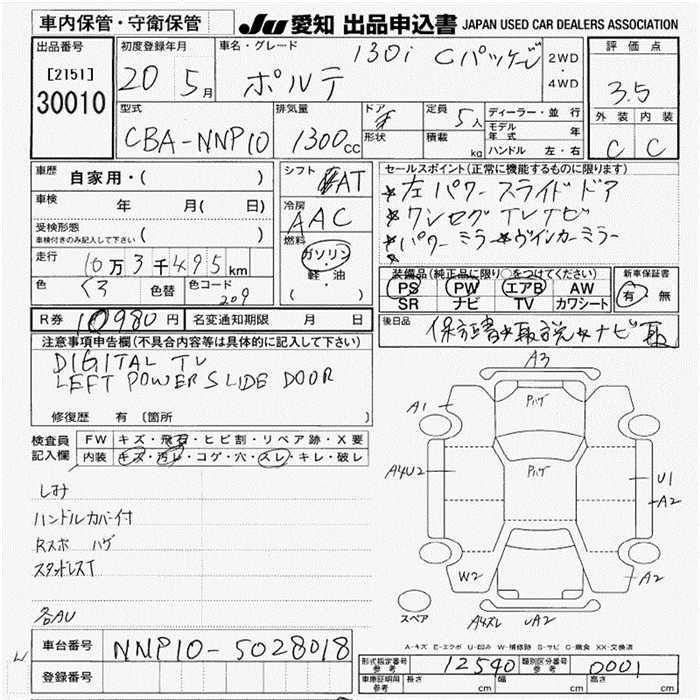 車内保管・守衛保管
JU 愛知 出品申込書 JAPAN USED CAR DEALERS ASSOCIATION
出品番号
[2151]
30010
初度登録年月
20 5月
車名・グレード
130i Cパッケージ
ポルテ
2WD
・
4WD
評価点
3.5
外装 内装
C C
型式
CBA-NNP10
排気量
1300cc
ドア
形状
定員 5人
積載 kg
ディーラー・並行
モデル年式 年
ハンドル 左・右
車歴
自家用・( )
車検
年 月( 日)
受検形態
車検付きのみ記入して下さい ( )
走行
10万3千495km
色
クロ
色替
色コード
209
シフト
AT
冷房
AAC
燃料
ガソリン
・
軽・油
( )
セールスポイント(正常に機能するものに限ります)
★左パワースライドドア
★ワンセグTVナビ
★パワーミラー★ウインカーミラー
装備品(純正品に限り○をつけてください)
PS PW エアB AW
SR ナビ TV カワシート
新車保証書
有・無
R券 10980円
名変通知期限 月 日
後日品
保証書★取説★ナビ取
注意事項申告欄(不具合内容等は具体的に記入して下さい)
DIGITAL TV
LEFT POWER SLIDE DOOR
修復歴 有 〔箇所 〕
検査員
記入欄
FW キズ・飛石・ヒビ割・リペア跡・X要
内装 キズ・汚レ・コゲ・穴・スレ・キレ・破レ
シミ
ハンドルカバー付
Rスホ ハゲ
スタッドレスT
各AU
A3
A1
Pハゲ
A4U2
Pハゲ
U1
A2
W2
A2
スペア
A4スレ
A2
A-キズ E-エクボ U-凹み W-補修跡 S-サビ C-腐食 XX-交換済
車台番号
NNP10-5028018
登録番号
型式指定番号
参考
12540
類別区分番号
参考
0001
車庫証明用
参考
長さ cm
幅 cm
高さ cm